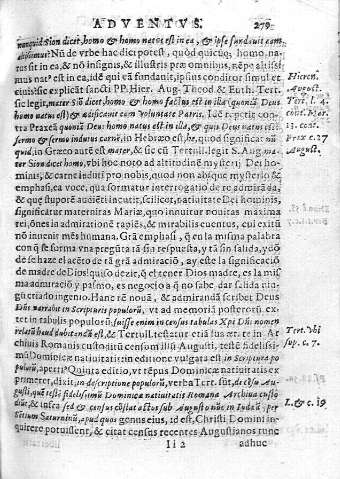 ADVENTVS. 279
nunquid Sion dicet, homo & homo natus est in ea, & ipse fundauit eam
altissimus? Nũ de vrbe hac dici potest, quòd quicúq; homo, na-
tus sit in ea, & nõ insignis, & illustris præ omnibus, nẽpe altissi
mus natº est in ea, idé qui eã fundauit, ipsius conditor simul et
ciuis? sic explicãt sancti PP. Hier. Aug. Theod & Euth. Tert.
sic legit, mater Siõ dicet, homo & homo factus est in illa (quoniã Deus
homo natus est) & ædificauit eam voluntate Patris. Idé repetit con-
tra Praxeã quoniã Deus homo natus est in illa, &
sermo & sermo in Hebræo est he, quod significat
quia, & in sexto mater, & sic cũ Tertull. legit S. Aug. ma-
ter Sion dicet homo, vbi hoc noto ad altitudiné mysterij Dei ho-
minis, & carne induti pro nobis, quod non absque mysterio &
emphasi, ea voce, qua formatur interrogatio de re admirãda,
& quę stuporé audiẽti incutit, scilicet, natiuitate Dei hominis,
significatur maternitas Mariæ, quo innuitur nouitas maxima
rei, õnes in admirationé rapiẽs, & mirabilis euentus, cui exitũ
nõ inueniat mẽs humana. Grã emphasi, q̃ en la misma palabra
con q̃ se forma vna pregũta tã sin respuesta, y tã sin salida, y dõ
de se haze el acẽto de la grã admiració, ay este la significació
de madre de Dios! quiso dezir, q̃ el tener Dios madre, es la mis
ma admiració y pasmo, es negocio a q̃ no sabe dar salida nin-
gũ criado ingenio. Hanc ré nouã, & admirandã scribet Deus
Dñs narrabit in Scripturis populorũ, vt ad memoriã posterorũ ex-
tet in tabulis populorũ (fuisse enim in census tabulas Xpi Dñi nomen
relatũ haud dubitandũ est, & Tertull. testatur etiã suo æt. te in Ar
chiuis Romanis custoditũ censum illũ Augusti, testẽ fidelissi-
mũ Dominicæ natiuitatis: in editione vulgata est in Scriptura po
pulorũ, aperiꝰ Quinta editio, vt tẽpus Dominicæ natiuitatis ex
primeret, dixit, in descriptione populorũ, verba Tert. sũt, de cẽsu Au-
gusti, quẽ testẽ fidelissimũ Dominicæ natiuitatis Romana Archiua custo
diũt, & infra sed & census cõstat actos sub Augusto nũc in Iudæa, per
Sẽtium Saturninũ, apud quos genus eius, id est, Christi Domini in-
quirere potuissent, & citat census recentes Augustianos tunc
Ii 2 adhuc
Hieren.
August.
Tert. l. 4.
cont. Mar.
13. cont.
Prax c. 27
August.
Tert. vbi
sup. c. 7.
L. 4. c. 19